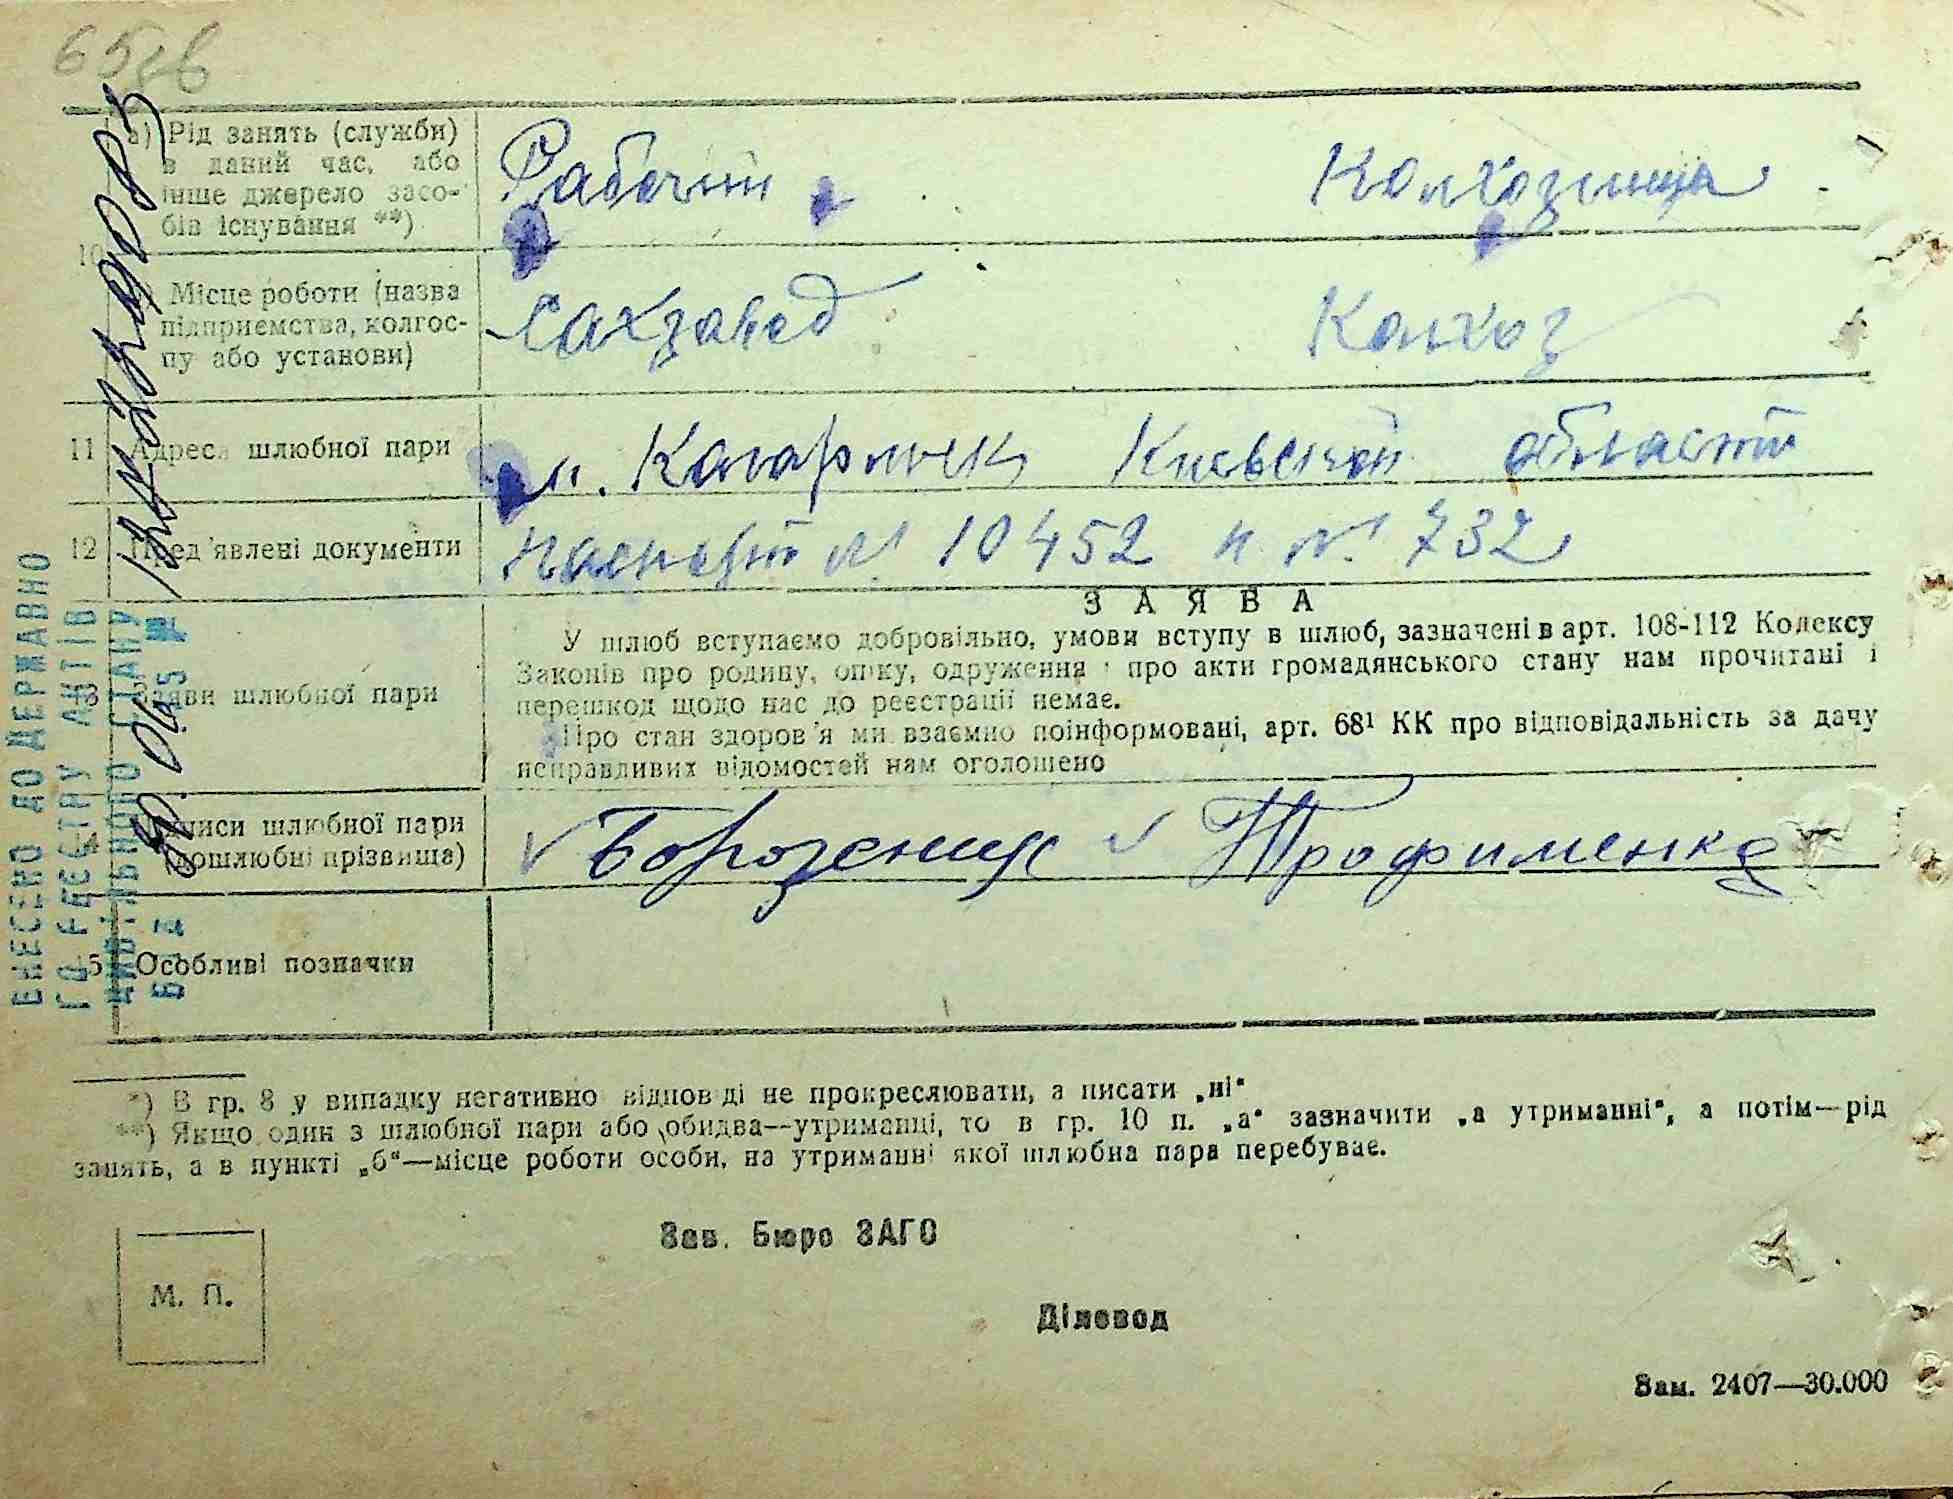 65зв
а) Рід занять (служби)
в даний час, або
інше джерело засо-
бів існування **)
Рабочий
Колхозница
10
Місце роботи (назва
підприємства, колгос-
пу або установи)
Сахзавод
Колхоз
11 Адреса шлюбної пари
м. Кагарлик Киевской области
12 Пред'явлені документи
паспорт № 10452 и № 732
13 Заяви шлюбної пари
ЗАЯВА
У шлюб вступаємо добровільно, умови вступу в шлюб, зазначені в арт. 108-112 Кодексу
Законів про родину, опіку, одруження і про акти громадянського стану нам прочитані і
перешкод щодо нас до реєстрації немає.
Про стан здоров'я ми взаємно поінформовані, арт. 68¹ КК про відповідальність за дачу
неправливих відомостей нам оголошено
14 Підписи шлюбної пари
(дошлюбні прізвища)
Трофименко
15 Особливі позначки
ВНЕСЕНО ДО ДЕРЖАВНО
ГО РЕЄСТРУ АКТІВ
ЦИВІЛЬНОГО СТАНУ
БЕЗ
*) В гр. 8 у випадку негативно відповіді не прокреслювати, а писати „ні“
**) Якщо один з шлюбної пари або обидва—утриманці, то в гр. 10 п. „а“ зазначити „а утриманні“, а потім—рід
занять, а в пункті „б“—місце роботи особи, на утриманні якої шлюбна пара перебуває.
Зав. Бюро ЗАГС
М. П.
Діловод
Зам. 2407—30.000